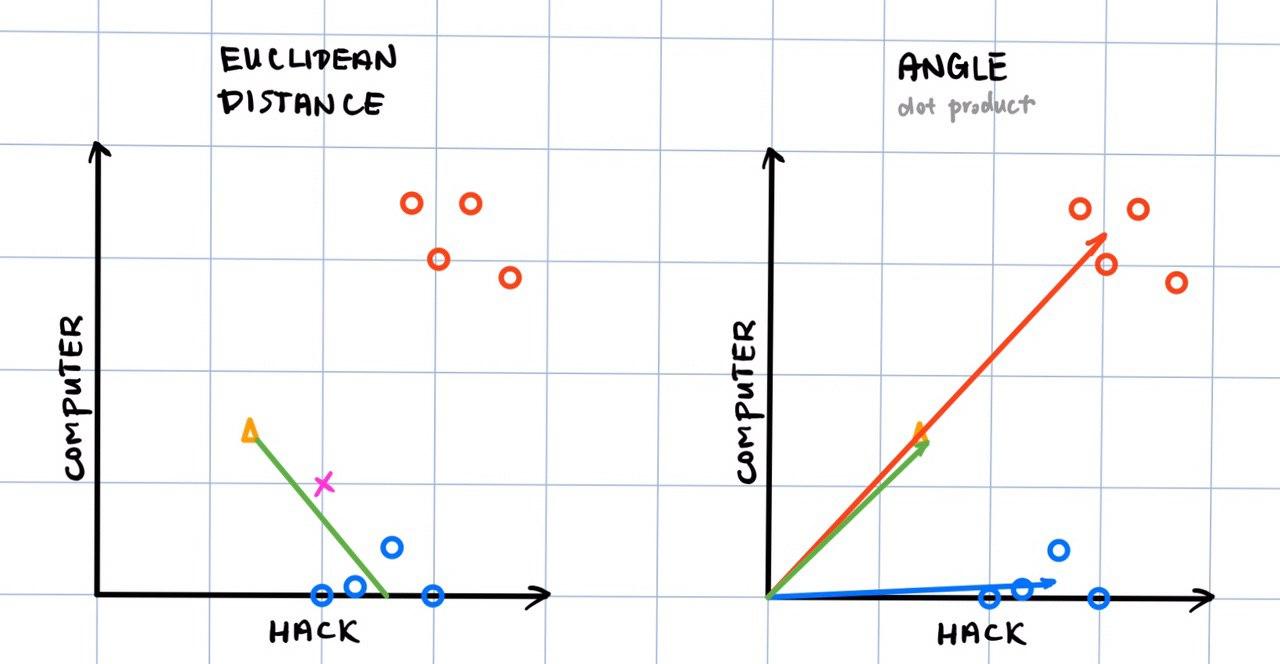 EUCLIDEAN
DISTANCE
COMPUTER
HACK
ANGLE
dot product
COMPUTER
HACK